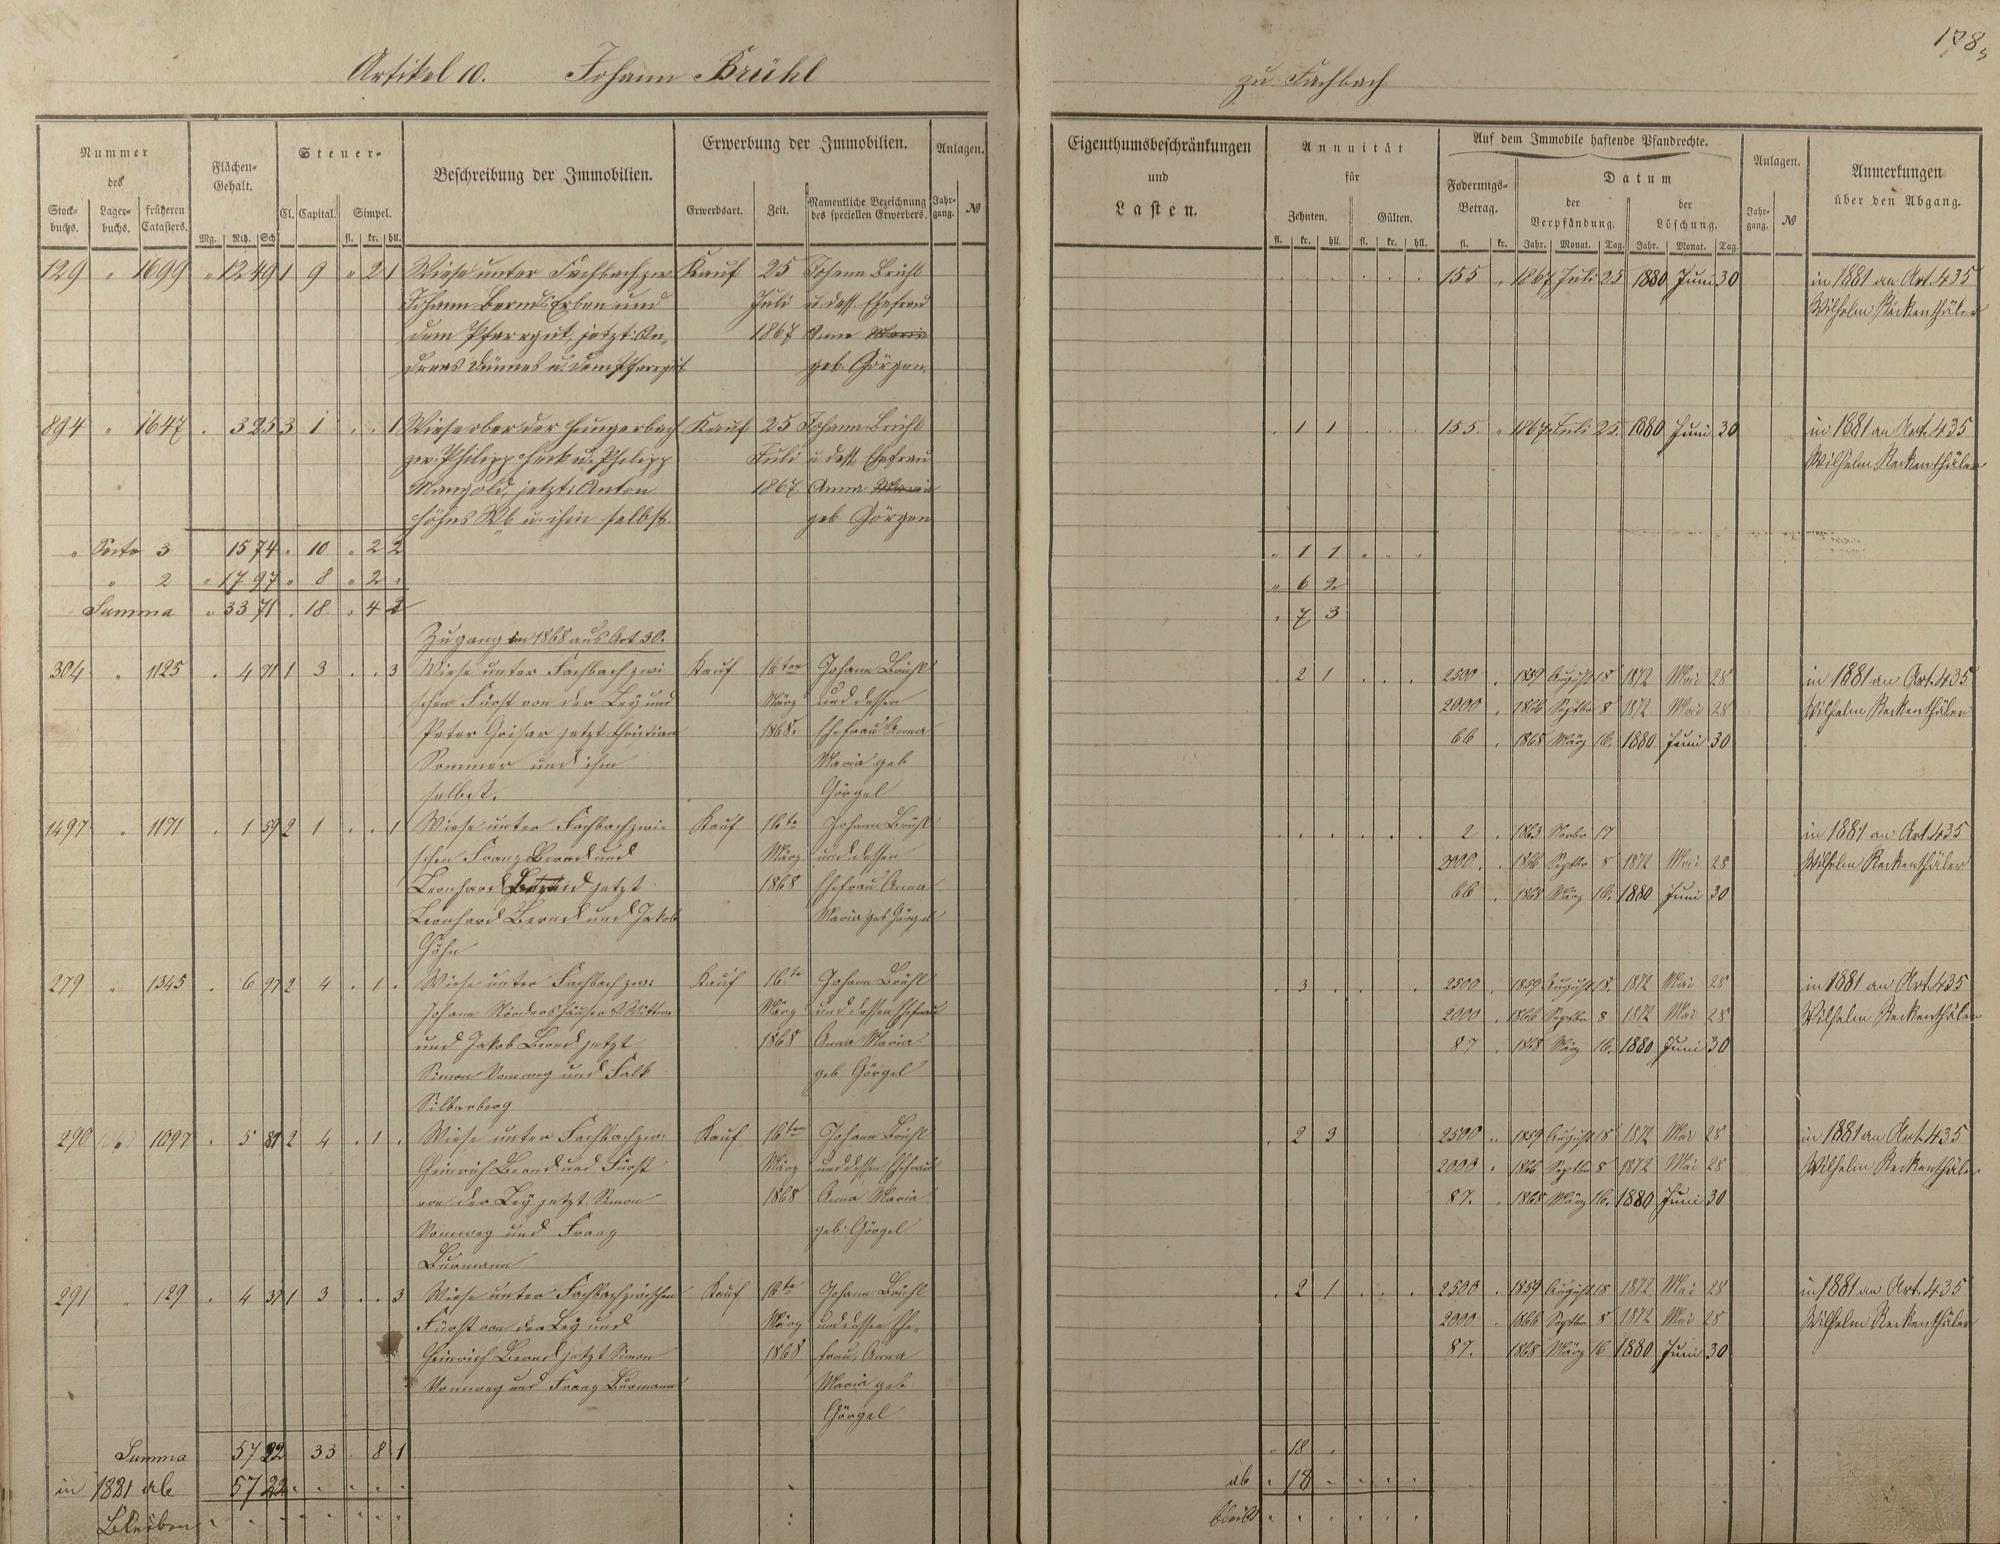 178,
Artikel 10. Johann Brühl zu Fachbach
Nummer des
Stockbuchs. Lagerbuchs. früheren Catasters.
Flächen-Gehalt.
Mg. Rth. Sch
Steuer-
Cl. Capital. Simpel.
fl. kr. hll.
Beschreibung der Immobilien.
Erwerbung der Immobilien.
Erwerbsart. Zeit. Namentliche Bezeichnung des speciellen Erwerbers.
Anlagen.
Jahrgang. №
Eigenthumsbeschränkungen und Lasten.
Annuität für
Zehnten. Gülten.
fl. kr. hll. fl. kr. hll.
Auf dem Immobile haftende Pfandrechte.
Foderungs-Betrag. Datum
der Verpfändung. der Löschung.
fl. kr. Jahr. Monat. Tag. Jahr. Monat. Tag.
Anlagen.
Jahrgang. №
Anmerkungen über den Abgang.
129 " 1699 " 12 49 1 9 " 2 1 Wiese unter Fachbach zw. Kauf 25 Johann Brühl 155 1867 Juli 25 1880 Juni 30 in 1881 an Art. 435
Johann Bernds Erben und Juli u. dess. Ehefrau Wilhelm Reckenthäler
dem Pfarrgut, jetzt: An- 1867 Anna Maria
dreas Dünnes u. dem Pfarrgut geb. Görgen.
894 " 1647 . 3 25 3 1 . . 1 Wiese ober der Hungerbach Kauf 25 Johann Brühl . 1 1 155. " 1867 Juli 25. 1880 Juni 30 in 1881 an Art. 435
zw. Philipp Heck u. Philipp Juli u. dess. Ehefrau Wilhelm Reckenthäler
Mangold, jetzt: Anton 1867. Anna Maria
Höhns Wb u. ihm selbst. geb. Görgen
" Seite 3 15 74 " 10 " 2 2 " 1 1
" 2 " 17 97 " 8 " 2 " " 6 2
Summa " 33 71 . 18 " 4 2 " 7 3
Zugang in 1868 aus Art 30.
304 " 1125 . 4 71 1 3 . . 3 Wiese unter Fachbach zwi Kauf 16ten Johann Brühl . 2 1 2500 . 1859 August 18 1872 Mai 28 in 1881 an Art. 435
schen Fürst von der Ley und März und dessen 2000 . 1866 Septbr 8 1872 Mai 28 Wilhelm Reckenthäler
Peter Grisar jetzt Christian 1868. Ehefrau Anna 66 . 1868 März 16. 1880 Juni 30
Sommer und ihm Maria geb
selbst. Görgel
1497 " 1171 . 1 59 2 1 . . 1 Wiese unter Fachbach zwi- Kauf 16te Johann Brühl 2 . 1863 Novbr 17 in 1881 an Art. 435
schen Franz Bernd und März und dessen 2000. . 1866 Septbr 8 1872 Mai 28 Wilhelm Reckenthäler
Leonhard Bernd jetzt 1868 Ehefrau Anna 66 . 1868 März 16. 1880 Juni 30
Leonhard Bernd und Jakob Maria geb Görgel
Höhn
279 " 1345 . 6 97 2 4 . 1 . Wiese unter Fachbach zw: Kauf 16te Johann Brühl . 3 . 2500 . 1859 August 18. 1872 Mai 28 in 1881 an Art. 435
Johann Nördershäuser Wittwe März und dessen Ehefrau 2000 . 1866 Septbr 8 1872 Mai 28 Wilhelm Reckenthäler
und Jakob Bernd jetzt 1868 Anna Maria 87 . 1868 März 16. 1880 Juni 30
Simon Vomweg und Falk geb Görgel
Silberberg
290 1097 . 5 81 2 4 . 1 . Wiese unter Fachbach zw: Kauf 16ten Johann Brühl . 2 3 2500 " 1859 August 18 1872 Mai 28 in 1881 an Art. 435
Heinrich Bernd und Fürst März und dessen Ehefrau 2000 . 1866 Septbr 8 1872 Mai 28 Wilhelm Reckenthäler
von der Ley jetzt Simon 1868 Anna Maria 87. . 1868 März 16. 1880 Juni 30
Vomweg und Franz geb: Görgel
Burmann
291 " 129 . 4 37 1 3 . . 3 Wiese unter Fachbach zwischen Kauf 16te Johann Brühl . 2 1 2500 . 1859 August 18 1872 Mai 28 in 1881 an Art. 435
Fürst von der Ley und März und dessen Ehe- 2000 . 1866 Septbr 8 1872 Mai 28 Wilhelm Reckenthäler
Heinrich Bernd jetzt Simon 1868 frau, Anna 87. . 1868 März 16 1880 Juni 30
Vomweg und Franz Burmann Maria geb
Görgel
Summa 57 22 33 . 8 1 " 18 "
in 1881 ab 57 22 . . . . . ab . 18 . . . .
Bleiben . . . . . . . . bleibt . . . . . .